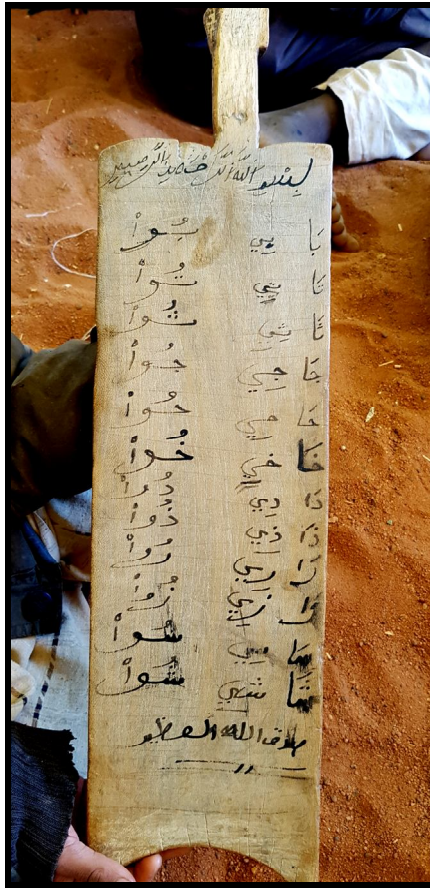 بسم الله الرحمن الرحيم
بَا بِي بُواْ
تَا تِي تُواْ
ثَا ثِي ثُواْ
جَا جِي جُواْ
حَا حِي حُواْ
خَا خِي خُواْ
دَا دِي دُواْ
ذَا ذِي ذُواْ
رَا رِي رُواْ
زَا زِي زُواْ
سَا سِي سُواْ
شَا شِي شُواْ
صدق الله العظيم